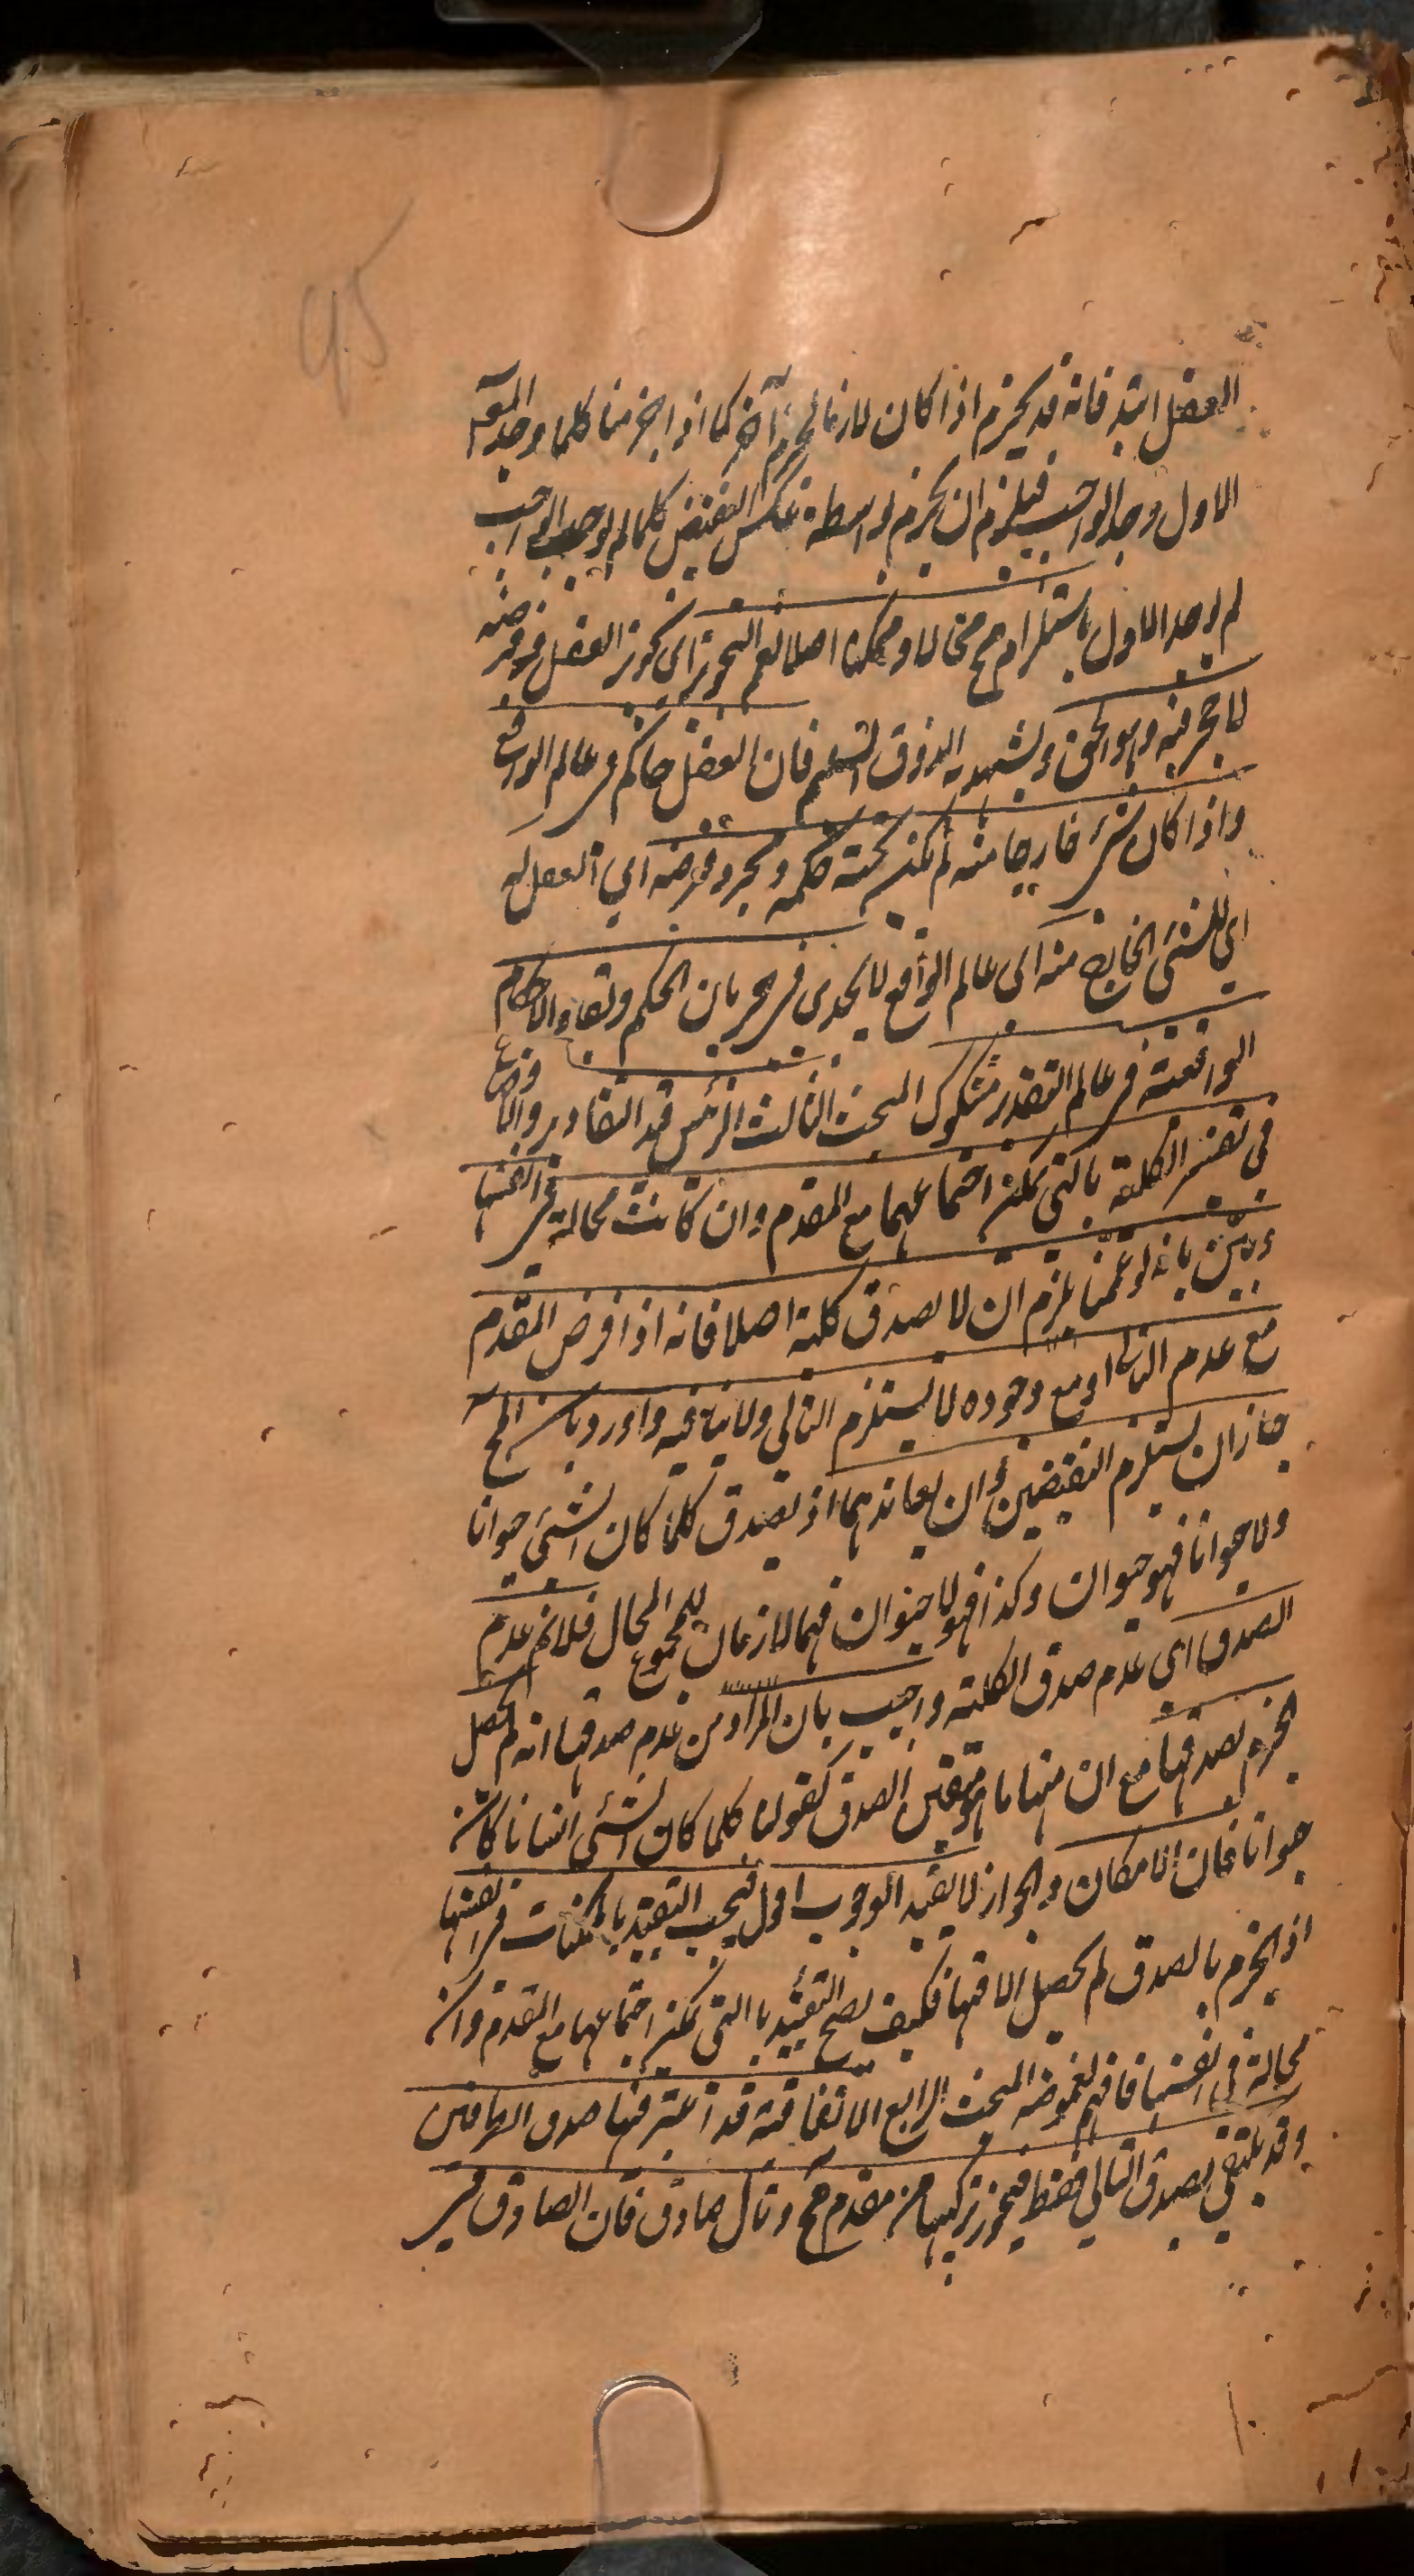 العقل ابتداء فانه قد يجزم اذا كان لازما لجزم آخر كما اذا جزمنا كلما وجد المعلول
الاول وجد الواجب فيلزم ان يجزم بواسطة عكس النقيض كلما لم يوجد الواجب
لم يوجد الاول باستلزام مح محالا او ممكنا اصلا نعم التجويز اي تجويز العقل في فرضه
لا حجر فيه وهو الحق ويشهد به الذوق السليم فان العقل حاكم في عالم الواقع
واذا كان شئ خارجا منه لم يكن تحته حكمه ومجرد فرضه اي العقل له
اي للشئ الخارج منه اي عالم الواقع لا يجدي في جريان الحكم وبقاء الاحكام
الواقعية في عالم التقدير مشكوك المبحث الثالث الرئيس قيد التقادير والاوضاع
في تفسير الكلية بالتي يمكن اجتماعها مع المقدم وان كانت محالة في انفسها
وبين بانه لو عممنا يلزم ان لا تصدق كلية اصلا فانه اذا فرض المقدم
مع عدم التالي او مع وجوده لا يستلزم التالي ولا ينافيه واورد بان المح
جاز ان يستلزم النقيضين وان يعاندهما اذ يصدق كلما كان الشئ حيوانا
ولا حيوانا فهو حيوان وكذا فهو لا حيوان فهما لازمان للمجموع المحال فلانم عدم
الصدق اي عدم صدق الكلية واجيب بان المراد من عدم صدقها انه لم يحصل
الجزم بصدقها مع ان منها ما هو متيقن الصدق كقولنا كلما كان الشئ انسانا كان
حيوانا فان الامكان والجواز لا يفيد الوجوب اقول فيجب التقييد بالممكنات في انفسها
اذ الجزم بالصدق لم يحصل الا فيها فكيف يصح التقييد بالتي يمكن اجتماعها مع المقدم وان كانت
محالة في انفسها فافهم لغموضه المبحث الرابع الاتفاقية قد اعتبر فيها صدق الطرفين
وقد يكتفي بصدق التالي فقط فيجوز تركيبها من مقدم مح وتال صادق فان الصادق في